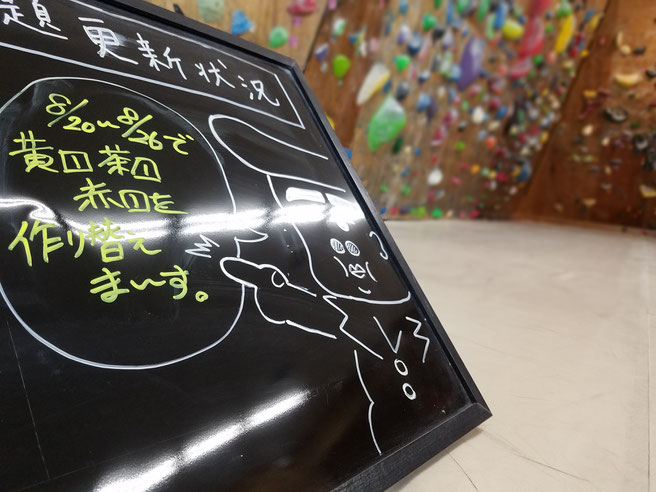 題 更新状況
8/20〜8/26で
黄口茶口
赤口を
作り替え
まーす。